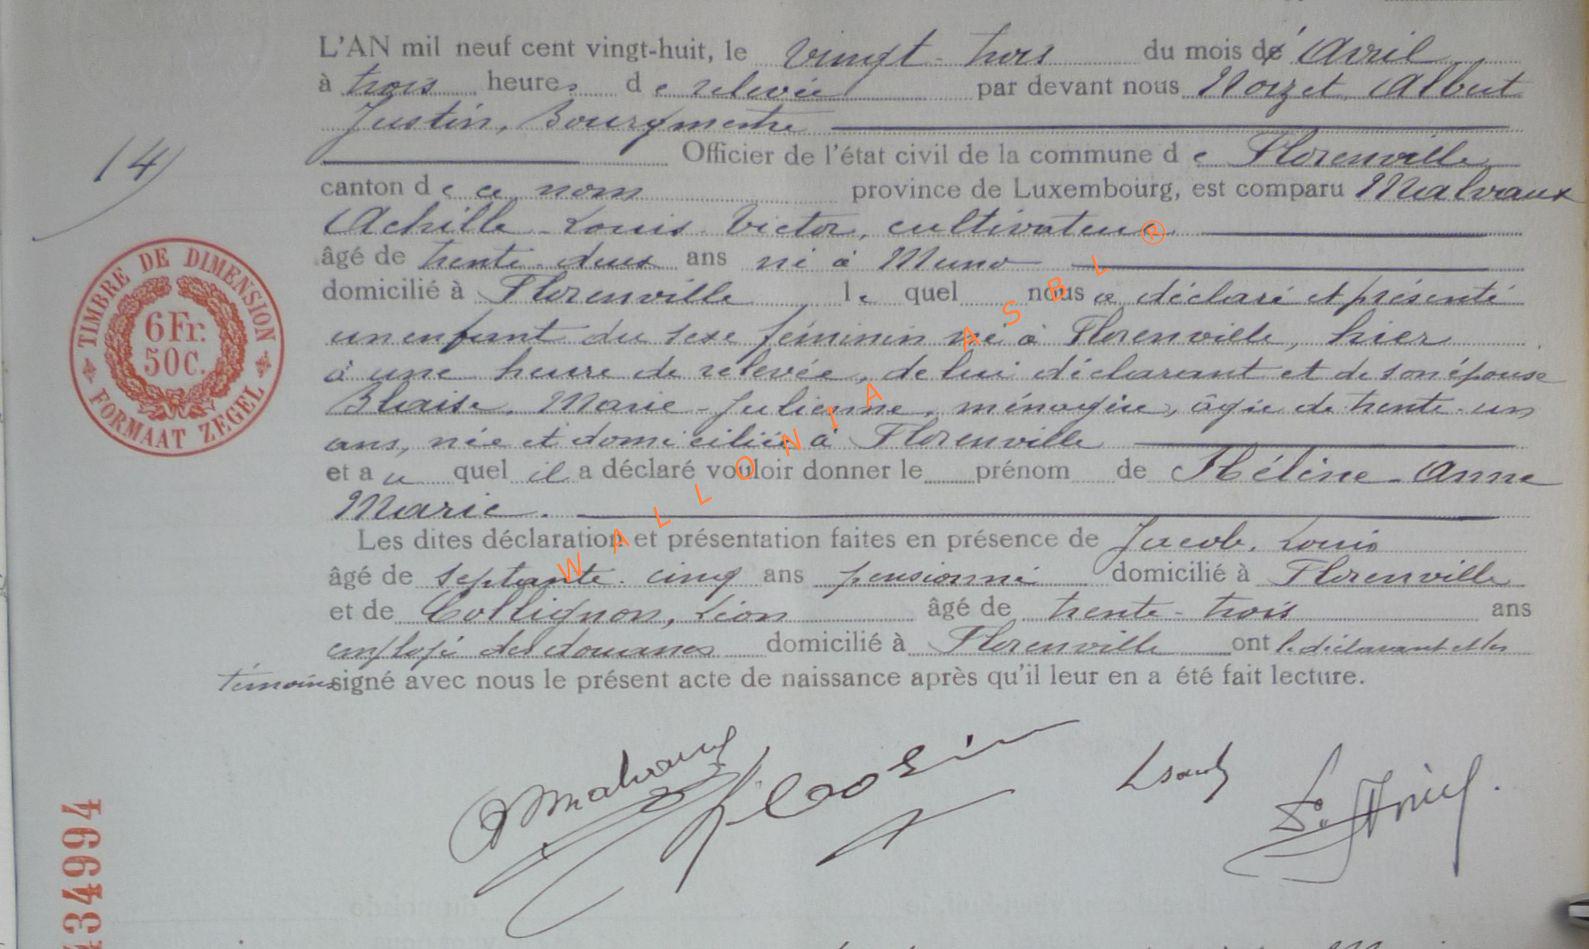 L'AN mil neuf cent vingt-huit, le vingt-trois du mois de Avril
à trois heures de relevée par devant nous Noizet, Albert
Justin, Bourgmestre
14)
Officier de l'état civil de la commune de Florenville
canton de ce nom province de Luxembourg, est comparu Malvaux
Achille-Louis-Victor, cultivateur
âgé de trente-deux ans né à Muno
domicilié à Florenville lequel nous a déclaré et présenté
un enfant du sexe féminin né à Florenville, hier
à une heure de relevée, de lui déclarant et de son épouse
Blaise, Marie-Julienne, ménagère, âgée de trente-un
ans, née et domiciliée à Florenville
et au quel il a déclaré vouloir donner le prénom de Hélène-Anne
Marie.
Les dites déclaration et présentation faites en présence de Jacob, Louis
âgé de septante-cinq ans pensionné domicilié à Florenville
et de Collignon, Léon âgé de trente-trois ans
employé des douanes domicilié à Florenville ont le déclarant et les
témoins signé avec nous le présent acte de naissance après qu'il leur en a été fait lecture.
AMalvaux
TIMBRE DE DIMENSION
6Fr.
50C.
FORMAAT ZEGEL
34994
WALLONIA ASBL ®